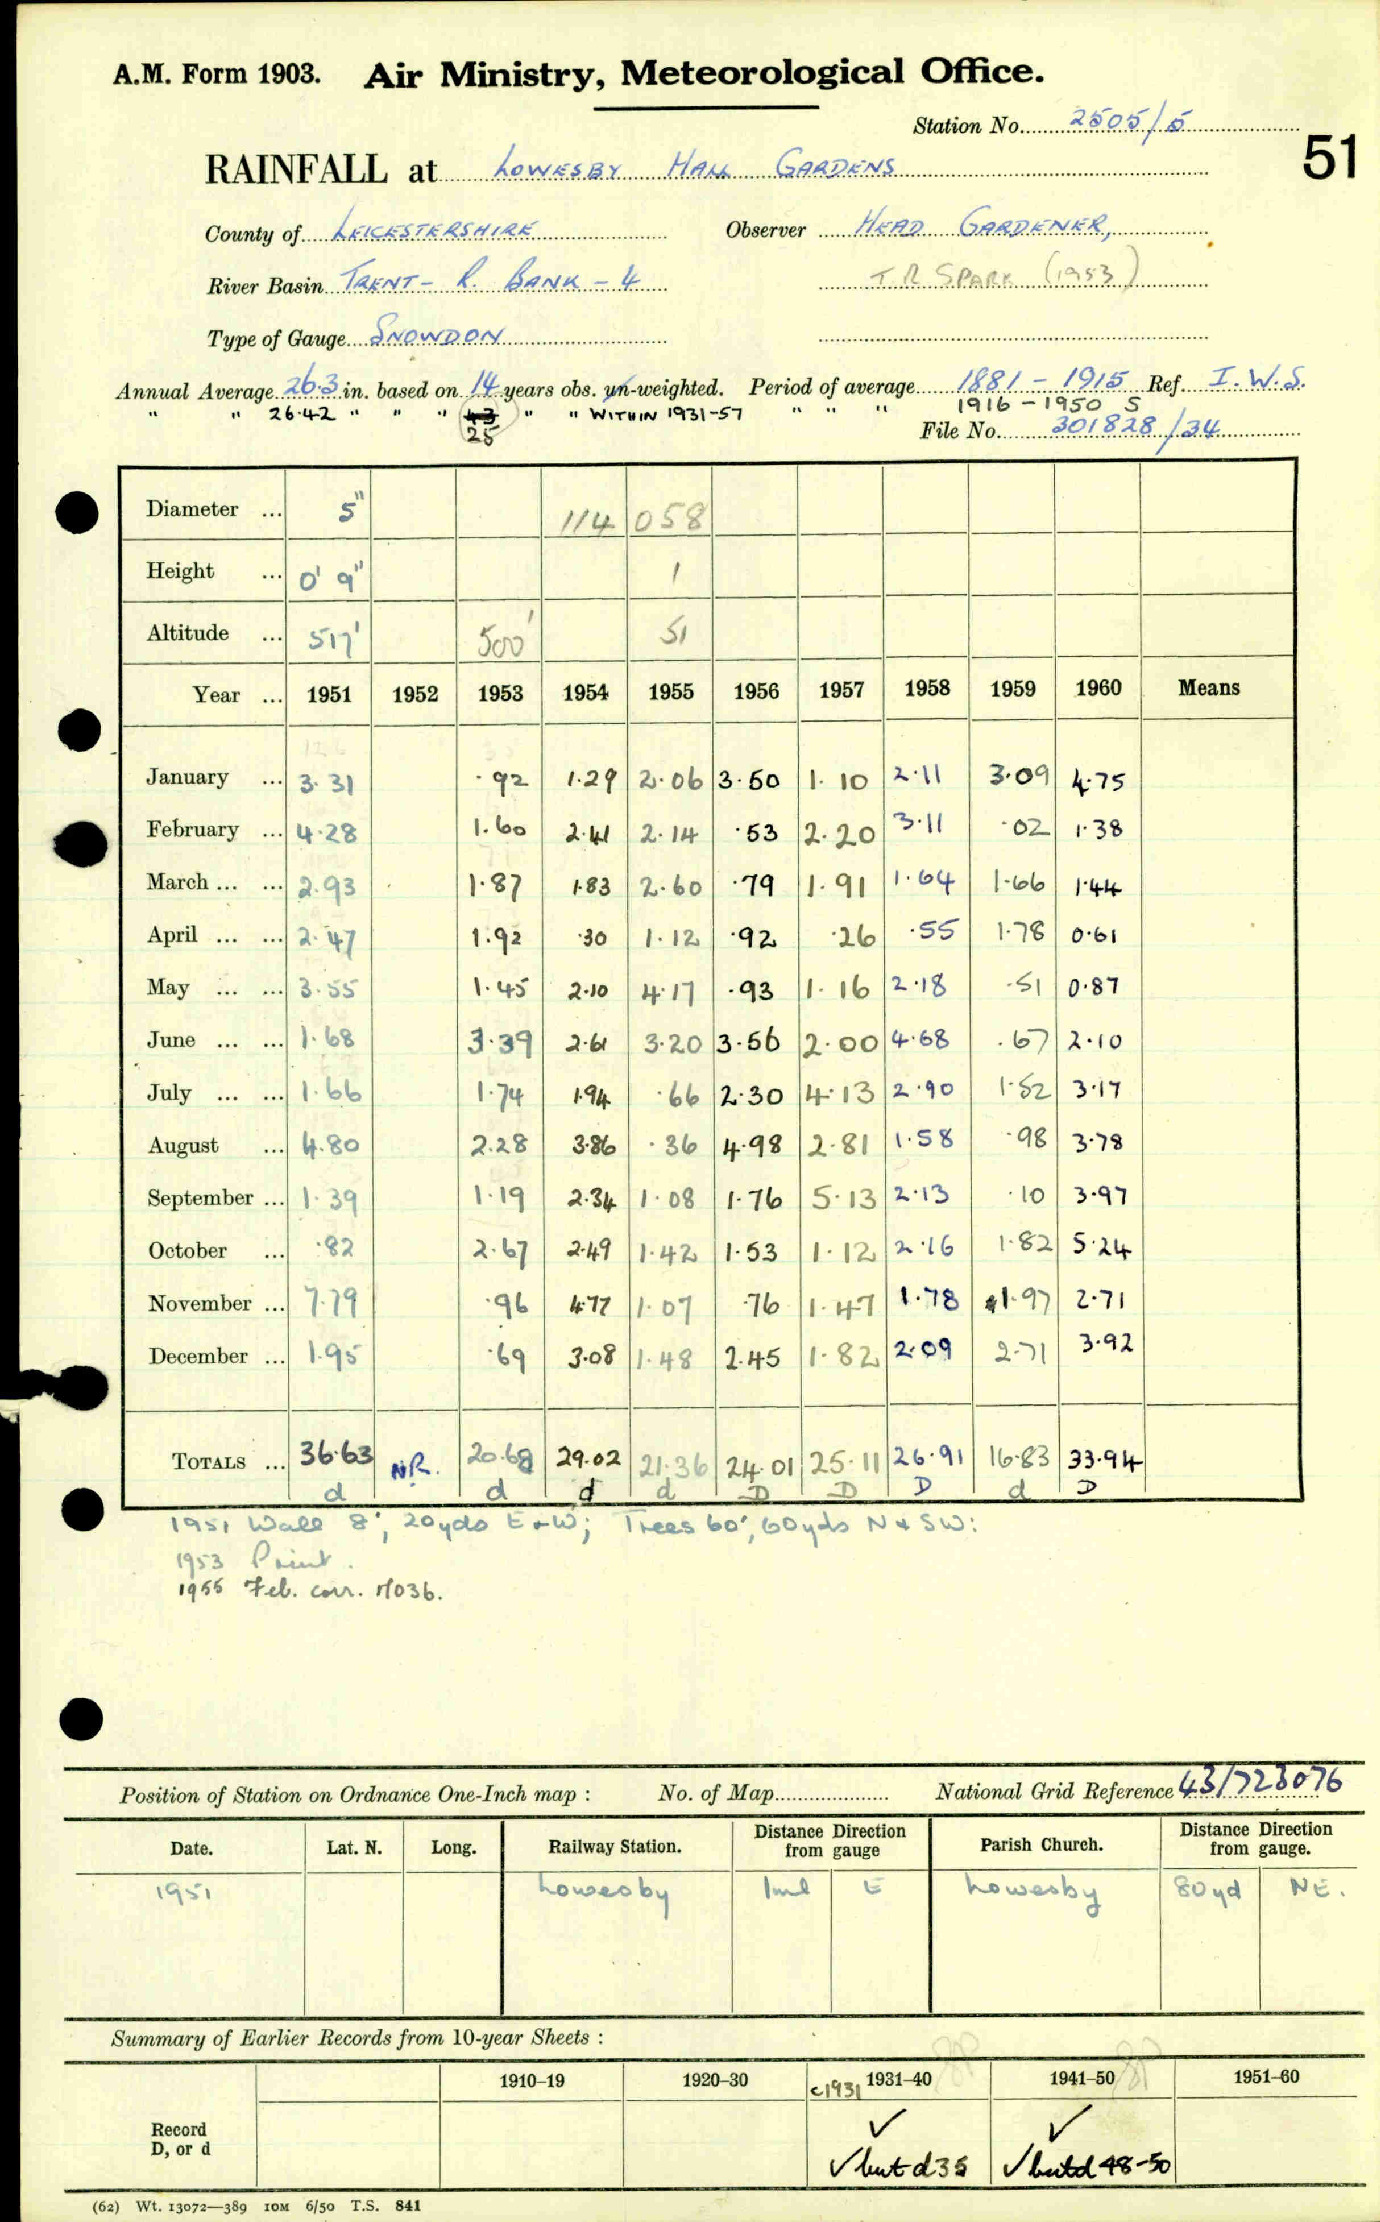 A.M. Form 1903. Air Ministry, Meteorological Office.
Station No. 2505/5
51
RAINFALL at LOWESBY HALL GARDENS
County of LEICESTERSHIRE Observer HEAD GARDENER,
River Basin TRENT - R. BANK - 4 T.R SPARK (1953)
Type of Gauge SNOWDON
Annual Average 26.3 in. based on 14 years obs. un-weighted. Period of average 1881 - 1915 Ref. I.W.S.
" " 26.42 " " " 43 " " WITHIN 1931-57 " " " 1916 - 1950 S
25 File No. 301828/34
Diameter ... 5" 114 058
Height ... 0' 9" 1
Altitude ... 517' 500' 51
Year ... 1951 1952 1953 1954 1955 1956 1957 1958 1959 1960 Means
January ... 3.31 .92 1.29 2.06 3.50 1.10 2.11 3.09 4.75
February ... 4.28 1.60 2.41 2.14 .53 2.20 3.11 .02 1.38
March ... ... 2.93 1.87 1.83 2.60 .79 1.91 1.64 1.66 1.44
April ... ... 2.47 1.92 .30 1.12 .92 .26 .55 1.78 0.61
May ... ... 3.55 1.45 2.10 4.17 .93 1.16 2.18 .51 0.87
June ... ... 1.68 3.39 2.61 3.20 3.56 2.00 4.68 .67 2.10
July ... ... 1.66 1.74 1.94 .66 2.30 4.13 2.90 1.52 3.17
August ... 4.80 2.28 3.86 .36 4.98 2.81 1.58 .98 3.78
September ... 1.39 1.19 2.34 1.08 1.76 5.13 2.13 .10 3.97
October ... .82 2.67 2.49 1.42 1.53 1.12 2.16 1.82 5.24
November ... 7.79 .96 4.77 1.07 .76 1.47 1.78 1.97 2.71
December ... 1.95 .69 3.08 1.48 2.45 1.82 2.09 2.71 3.92
TOTALS ... 36.63 N.R. 20.68 29.02 21.36 24.01 25.11 26.91 16.83 33.94
d d d d D D D d D
1951 Wall 8', 20yds E & W; Trees 60', 60yds N & SW:
1953 Print.
1955 Feb. corr. M036.
Position of Station on Ordnance One-Inch map : No. of Map National Grid Reference 43/723076
Date. Lat. N. Long. Railway Station. Distance from gauge Direction Parish Church. Distance from gauge. Direction
1951 Lowesby 1ml E Lowesby 80yd NE.
Summary of Earlier Records from 10-year Sheets :
1910–19 1920–30 c1931 1931–40 1941–50 1951–60
Record D, or d ✓ ✓
✓ but d 35 ✓ but d 48-50
(62) Wt. 13072—389 10M 6/50 T.S. 841